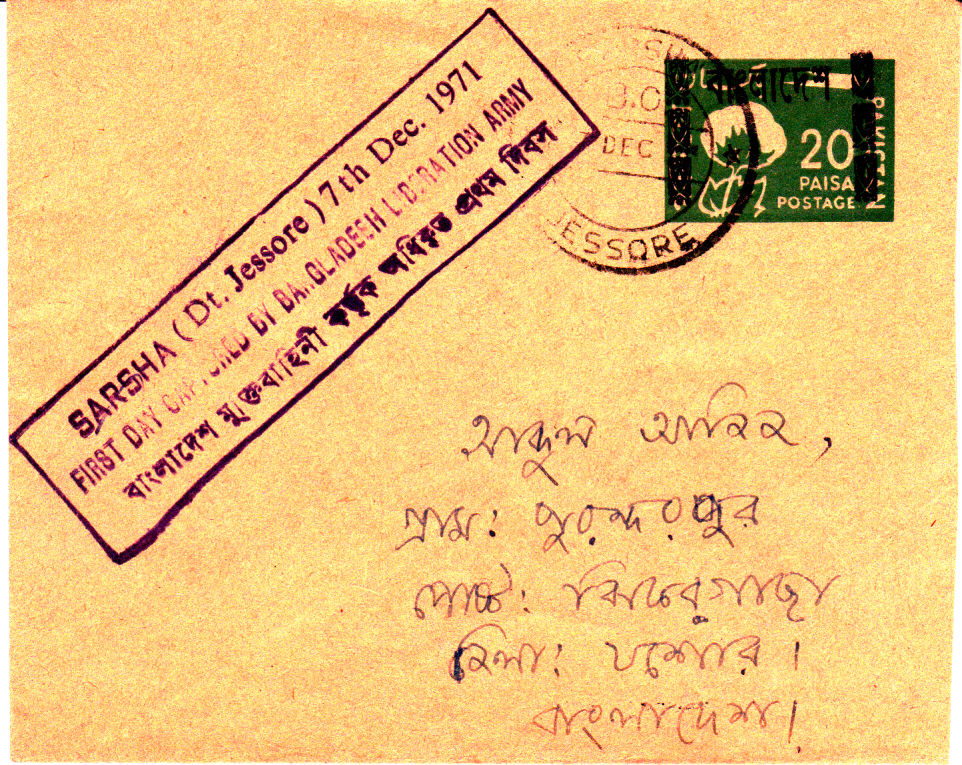 SARSHA (Dt. Jessore) 7th Dec. 1971
FIRST DAY CAPTURED BY BANGLADESH LIBERATION ARMY
বাংলাদেশ মুক্তিবাহিনী কর্তৃক অধিকৃত প্রথম দিবস
B.O
DEC
JESSORE
বাংলাদেশ
PAKISTAN
20
PAISA
POSTAGE
আব্দুল
গ্রাম: পুরন্দরপুর
পোষ্ট: ঝিকরগাছা
জিলা: যশোর।
বাংলাদেশ।